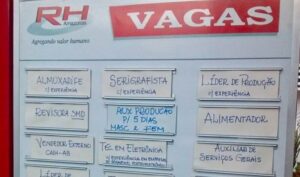 RH
Amazonas
Agregando valor humano.
VAGAS
ALMOXARIFE
C/ EXPERIÊNCIA
SERIGRAFISTA
C/ EXPERIÊNCIA
LÍDER DE PRODUÇÃO
C/ EXPERIÊNCIA
REVISORA SMD
AUX PRODUÇÃO
P/ 5 DIAS
MASC & FEM
ALIMENTADOR
VENDEDOR EXTERNO
CNH-AB
TEC EM ELETRÔNICA
C/ EXPERIÊNCIA EM
AUXILIAR DE
SERVIÇOS GERAIS
LÍDER DE